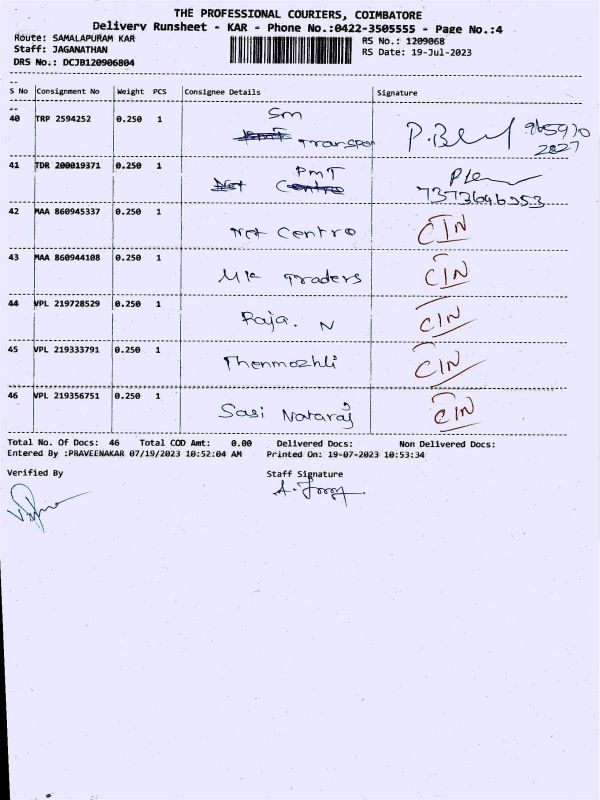 THE PROFESSIONAL COURIERS, COIMBATORE
Delivery Runsheet - KAR - Phone No.:0422-3505555 - Page No.:4
Route: SAMALAPURAM KAR
RS No.: 1209068
Staff: JAGANATHAN
RS Date: 19-Jul-2023
DRS No.: DCJB120906804
S No Consignment No Weight PCS Consignee Details Signature
40 TRP 2594252 0.250 1 Sm
Transpor
41 TDR 200019371 0.250 1 PMT
Centre
42 MAA 860945337 0.250 1 Net Centre CIN
43 MAA 860944108 0.250 1 Mk Traders CIN
44 VPL 219728529 0.250 1 Raja. N CIN
45 VPL 219333791 0.250 1 Thenmozhli CIN
46 VPL 219356751 0.250 1 Sasi Nataraj CIN
Total No. Of Docs: 46 Total COD Amt: 0.00 Delivered Docs: Non Delivered Docs:
Entered By :PRAVEENAKAR 07/19/2023 10:52:04 AM Printed On: 19-07-2023 10:53:34
Verified By Staff Signature